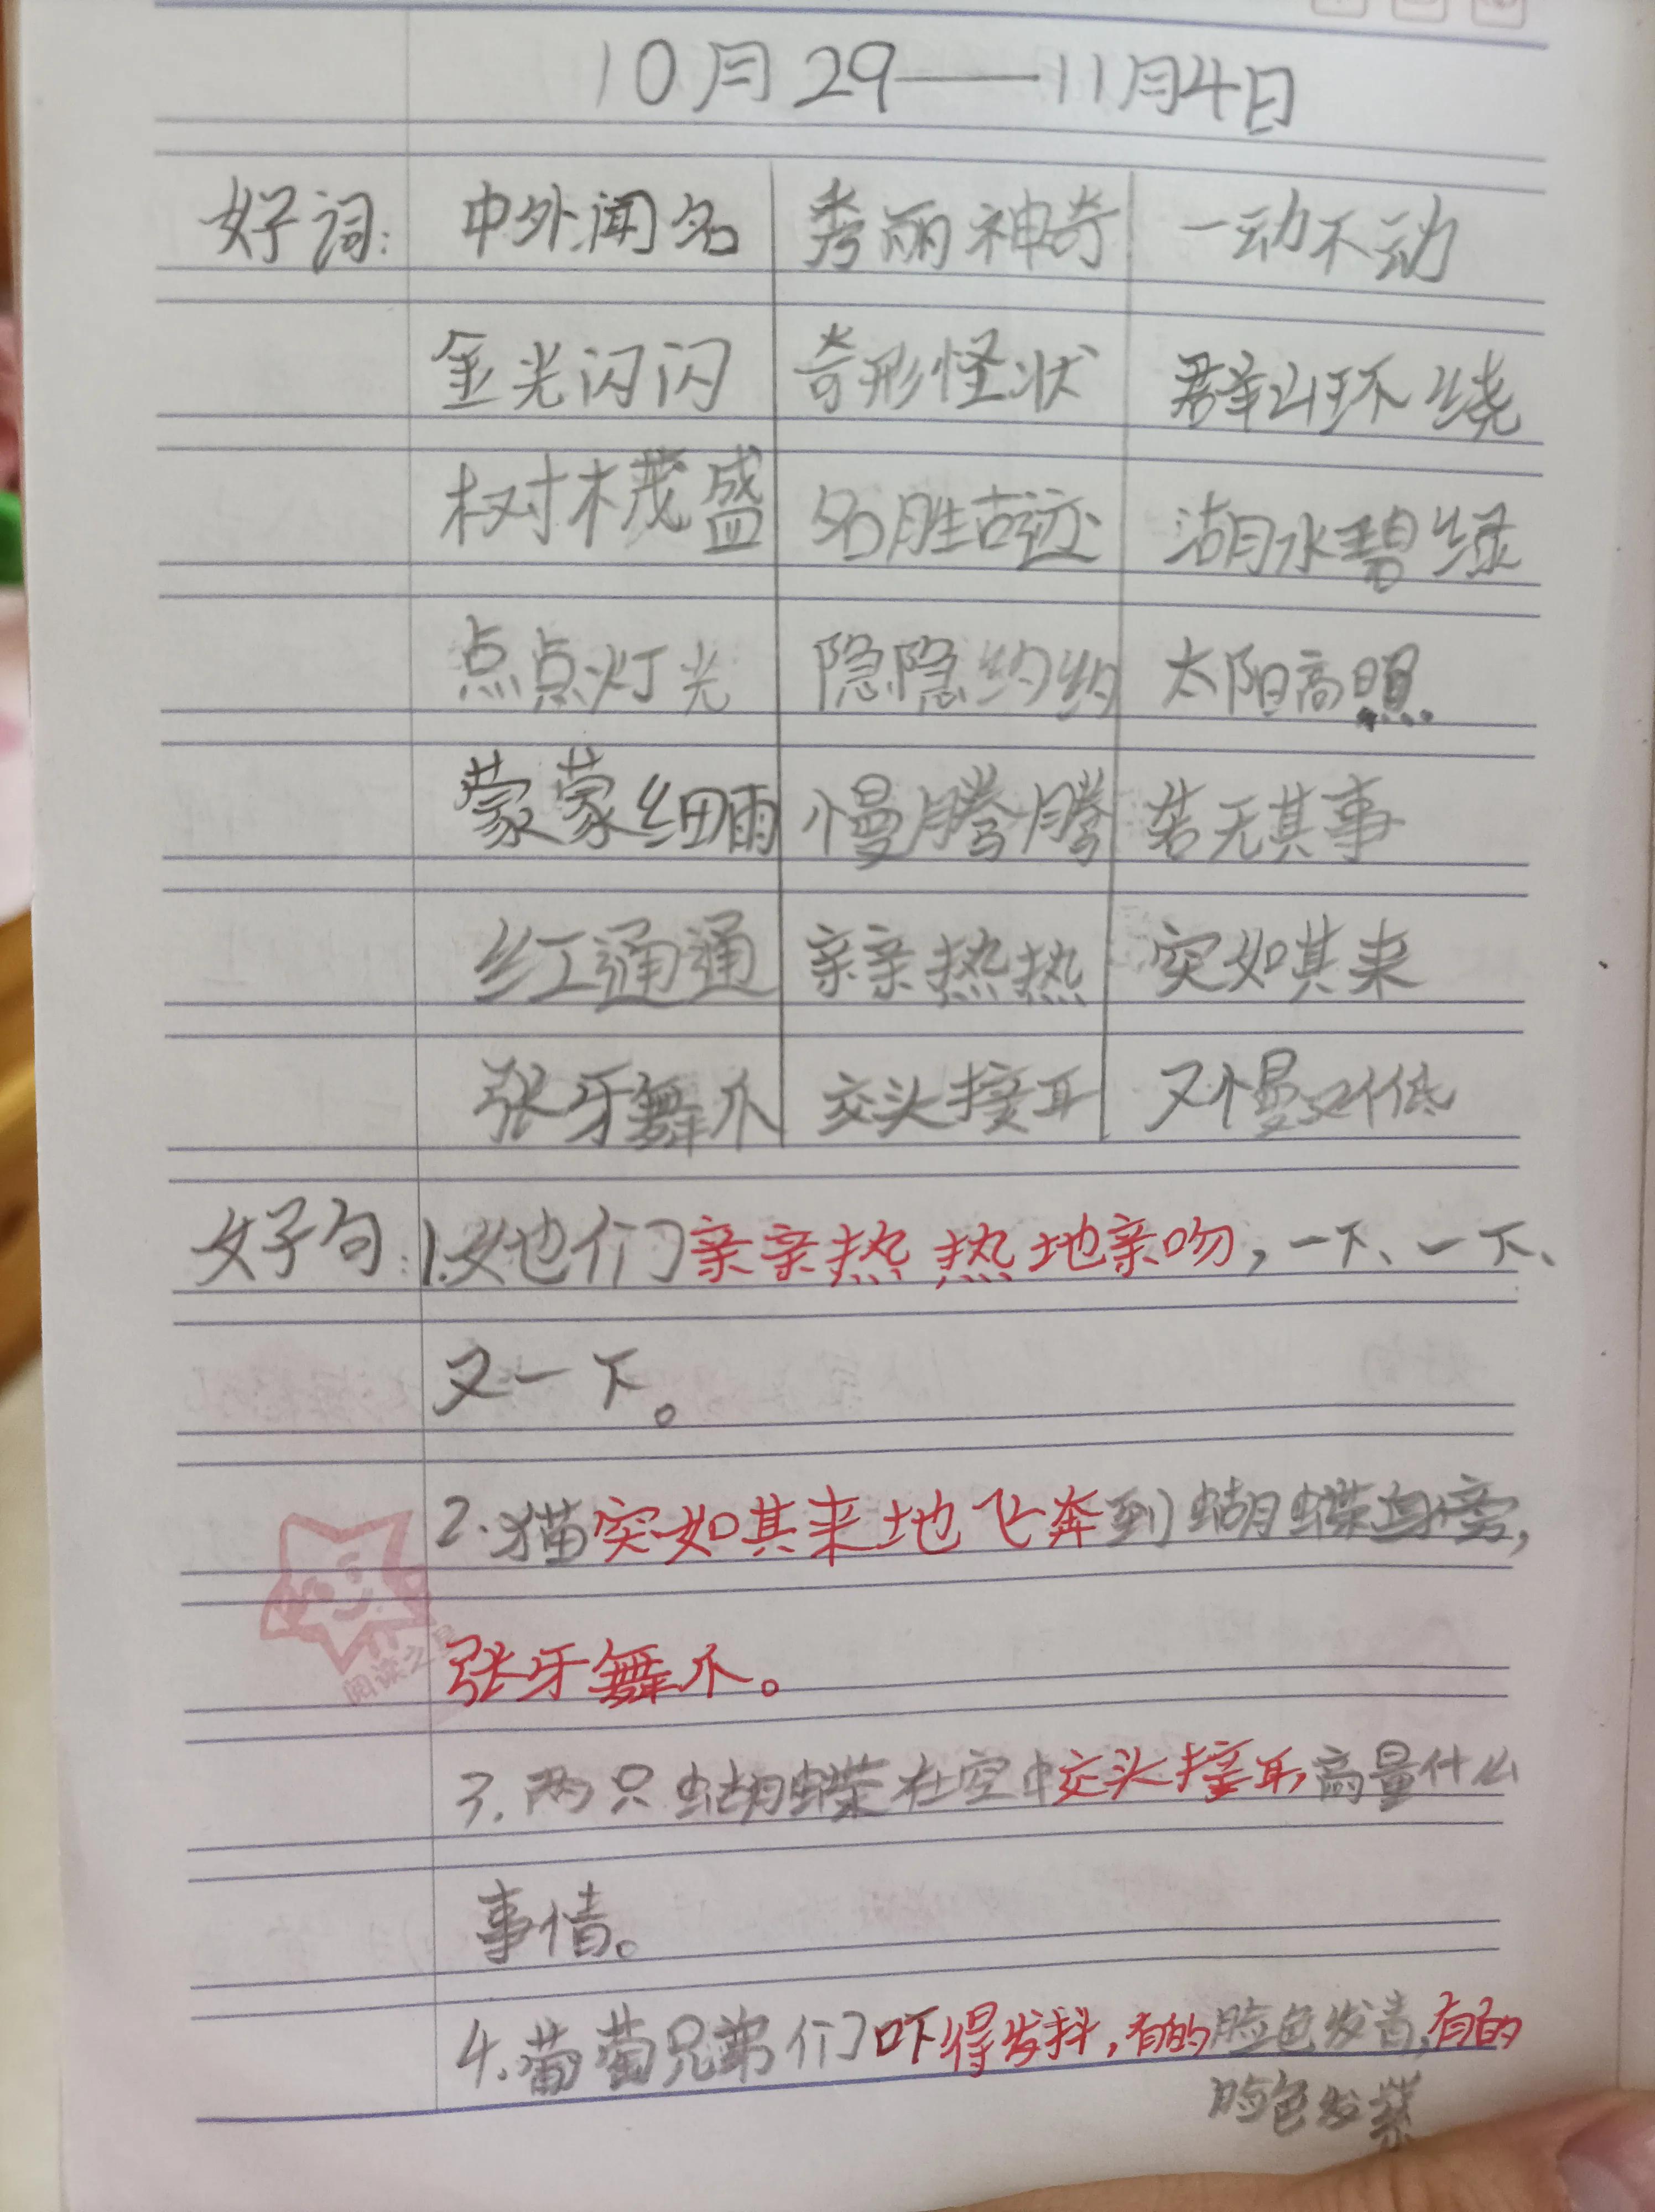 10月29——11月4日
好词: 中外闻名 秀丽神奇 一动不动
金光闪闪 奇形怪状 群山环绕
树木茂盛 名胜古迹 湖水碧绿
点点灯光 隐隐约约 太阳高照
蒙蒙细雨 慢腾腾 若无其事
红通通 亲亲热热 突如其来
张牙舞爪 交头接耳 又慢又低
好句: 1.她们亲亲热热地亲吻,一下、一下、
又一下。
2.猫突如其来地飞奔到蝴蝶身旁,
张牙舞爪。
阅读之星
3.两只蝴蝶在空中交头接耳,商量什么
事情。
4.葡萄兄弟们吓得发抖,有的脸色发青,有的
脸色发紫